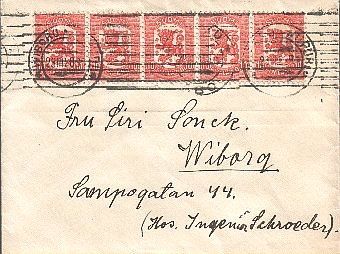 Fru Siri Sonck.
Wiborg
Sampogatan 44.
(Hos. Ingeniör Schroeder).